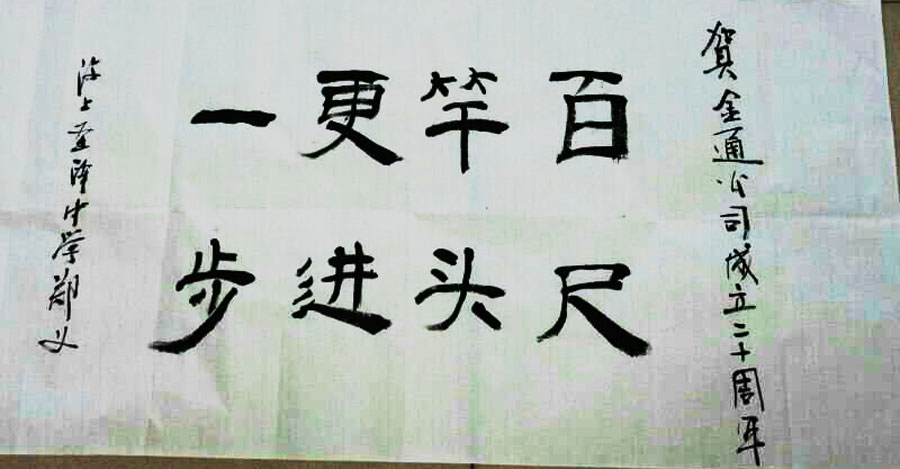 賀金通公司成立二十周年
百尺
竿头
更进
一步
上中学郑义